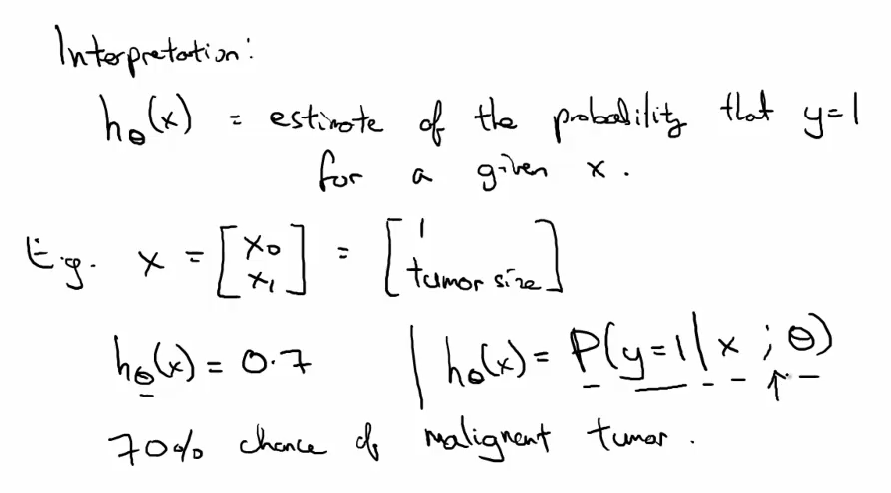 Interpretation:
hθ(x) = estimate of the probability that y=1
for a given x.
E.g. x = [x0 x1] = [1 tumor size]
hθ(x) = 0.7 | hθ(x) = P(y=1|x;θ)
70% chance of malignent tumor.